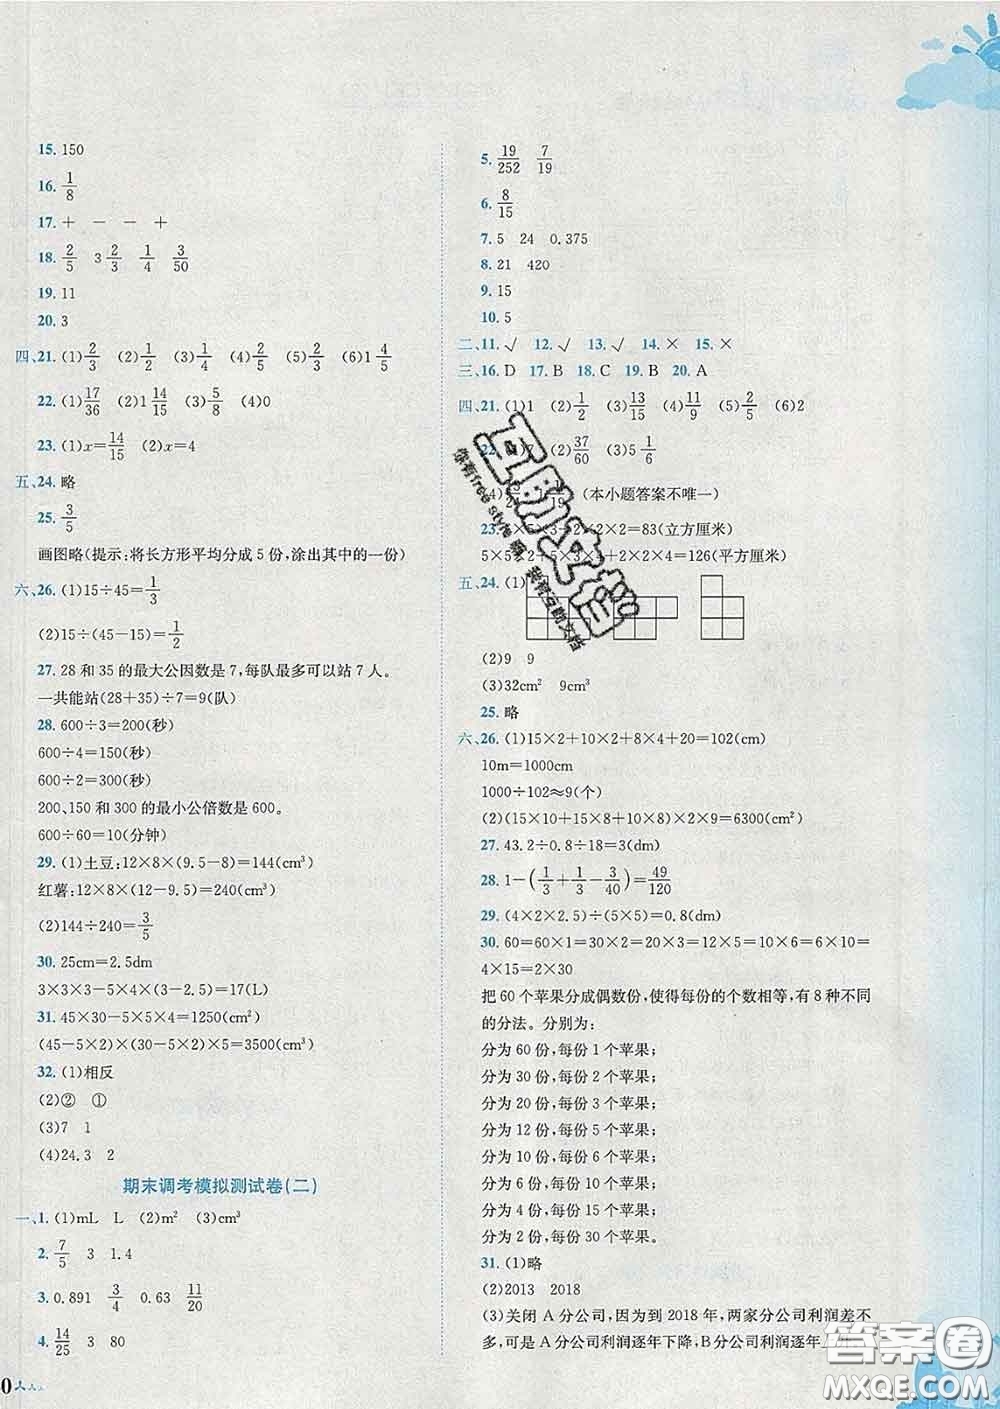 15. 150
16. 1/8
17. + － － +
18. 2/5 3 2/3 1/4 3/50
19. 11
20. 3
四、21. (1) 2/3 (2) 1/2 (3) 1/4 (4) 2/5 (5) 1/3 (6) 1 4/5
22. (1) 17/36 (2) 1 14/15 (3) 5/8 (4) 0
23. (1) x= 14/15 (2) x=4
五、24. 略
25. 3/5
画图略(提示:将长方形平均分成 5 份,涂出其中的一份)
六、26. (1)15÷45= 1/3
(2)15÷(45-15)= 1/2
27. 28 和 35 的最大公因数是 7,每队最多可以站 7 人。
一共能站(28+35)÷7=9(队)
28. 600÷3=200(秒)
600÷4=150(秒)
600÷2=300(秒)
200、150 和 300 的最小公倍数是 600。
600÷60=10(分钟)
29. (1)土豆:12×8×(9.5-8)=144(cm³)
红薯:12×8×(12-9.5)=240(cm³)
(2)144÷240= 3/5
30. 25cm=2.5dm
3×3×3-5×4×2.5=17(L)
31. 45×30-5×5×4=1250(cm²)
(45-5×2)×(30-5×2)×5=3500(cm³)
32. (1)相反
(2)② ①
(3)7 1
(4)24.3 2
期末调考模拟测试卷(二)
一、1. (1)mL L (2)m² (3)cm³
2. 7/5 3 1.4
3. 0.891 3/4 0.63 11/20
4. 14/25 3 80
5. 19/252 7/19
6. 8/15
7. 5 24 0.375
8. 21 420
9. 15
10. 5
二、11. √ 12. √ 13. √ 14. × 15. ×
三、16. D 17. B 18. C 19. B 20. A
四、21. (1)1 (2) 1/2 (3) 13/15 (4) 11/9 (5) 2/5 (6)2
22. (1)7 (2) 37/60 (3)5 1/6
(本小题答案不唯一)
23. 5×5×3+2×2×2=83(立方厘米)
5×5×2+5×3×4+2×2×4=126(平方厘米)
五、24. (1)
(2)9 9
(3)32cm² 9cm³
25. 略
六、26. (1)15×2+10×2+8×4+20=102(cm)
10m=1000cm
1000÷102≈9(个)
(2)(15×10+15×8+10×8)×2×9=6300(cm²)
27. 43.2÷0.8÷18=3(dm)
28. 1-(1/3+1/3-3/40)= 49/120
29. (4×2×2.5)÷(5×5)=0.8(dm)
30. 60=60×1=30×2=20×3=12×5=10×6=
4×15=2×30
把 60 个苹果分成偶数份,使得每份的个数相等,有 8 种不同
的分法。分别为:
分为 60 份,每份 1 个苹果;
分为 30 份,每份 2 个苹果;
分为 20 份,每份 3 个苹果;
分为 12 份,每份 5 个苹果;
分为 10 份,每份 6 个苹果;
分为 6 份,每份 10 个苹果;
分为 4 份,每份 15 个苹果;
分为 2 份,每份 30 个苹果。
31. (1)略
(2)2013 2018
(3)关闭 A 分公司,因为到 2018 年,两家分公司利润差不
多,可是 A 分公司利润逐年下降,B 分公司利润逐年上
互助文档
你有free style吗
我有互助文档
答案圈
MXQE.COM